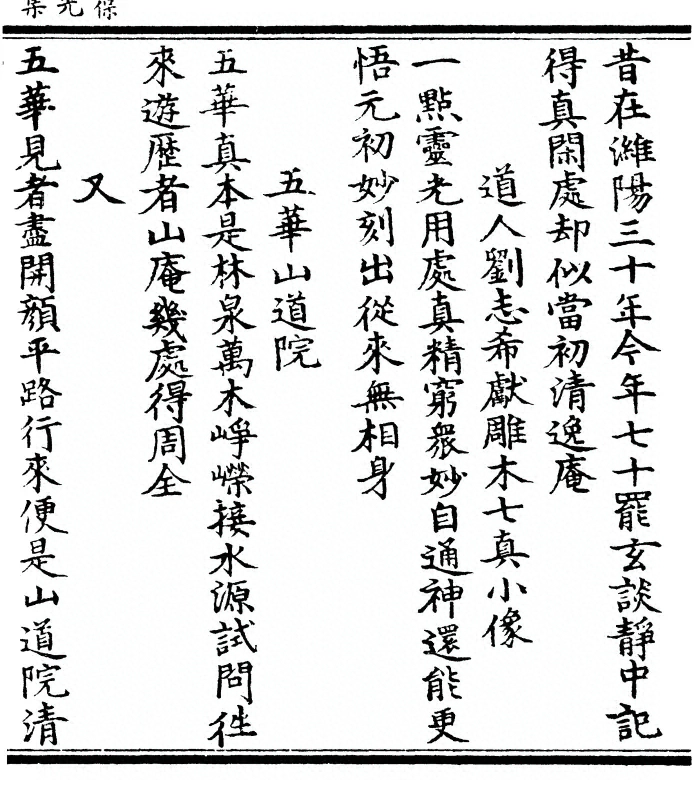 昔在濰陽三十年今年七十罷玄談靜中記
得真閑處却似當初清逸庵
道人劉志希獻雕木七真小像
一點靈光用處真精窮衆妙自通神還能更
悟元初妙刻出從來無相身
五華山道院
五華真本是林泉萬木崢嶸接水源試問徃
來遊歷者山庵幾處得周全
又
五華見者盡開顏平路行來便是山道院清